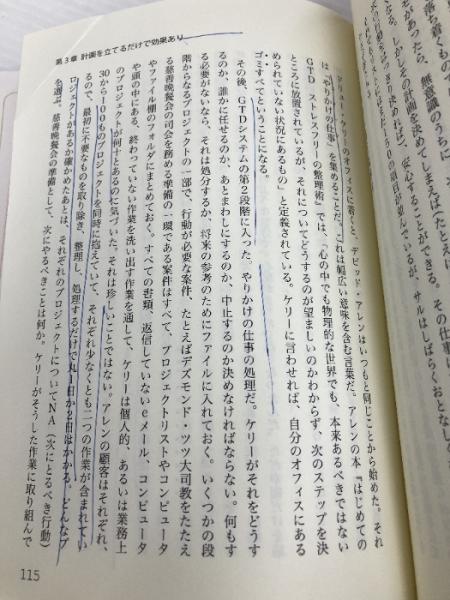 第3章 計画を立てるだけで効果あり
ドリュー・ケリーのオフィスに着くと、デビッド・アレンはいつもと同じことから始めた。それ
は「やりかけの仕事」を集めることだ。これは幅広い意味を含む言葉だ。アレンの本『はじめての
GTD ストレスフリーの整理術』では、「心の中でも物理的な世界でも、本来あるべきではない
ところに放置されているが、それについてどうするのが望ましいのかわからず、次のステップを決
められていない状況にあるもの」と定義されている。ケリーに言わせれば、自分のオフィスにある
ゴミすべてということになる。
その後、GTDシステムの第2段階に入った。やりかけの仕事の処理だ。ケリーがそれをどうす
るのか、誰かに任せるのか、あとまわしにするのか、中止するのか決めなければならない。何もす
る必要がないなら、それは処分するか、将来の参考のためにファイルに入れておく。いくつかの段
階からなるプロジェクトの一部で、行動が必要な案件、たとえばデズモンド・ツツ大司教をたたえ
る慈善晩餐会の司会を務める準備の一環である案件はすべて、プロジェクトリストやコンピュータ
やファイル棚のフォルダにまとめておく。すべての書類、返信していないeメール、コンピュータ
や頭の中にある、終わっていない作業を洗い出す作業を通して、ケリーは個人的、あるいは業務上
のプロジェクトが何十とあるのに気づいた。それは珍しいことではない。アレンの顧客はそれぞれ、
30から100ものプロジェクトを同時に抱えていて、それぞれ少なくとも二つの作業が含まれてい
るので、最初に不要なものを取り除き、整理し、処理するだけで丸1日か2日はかかる。どんなプ
ロジェクトがあるか確かめたあとは、それぞれのプロジェクトについてNA（次にとるべき行動）
を選ぶ。慈善晩餐会の準備として、次にやるべきことは何か。ケリーがそうした作業に取り組んで
115
落ち着くもの
があったら、無意識のうちに
しかしその計画を決めてしまえば（たとえ
安心することができる。その
の項目が並んでいるが、サルはしばらくおとなし